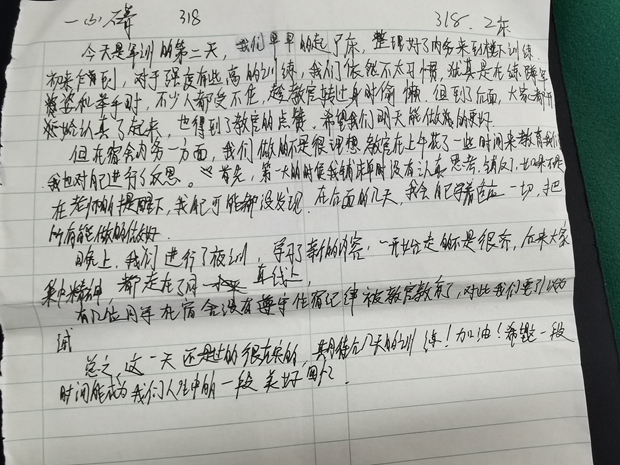 318
318.2床
今天是军训的第二天，我们早早的起了床，整理好了内务来到楼下训练.
初来乍到，对于强度有些高的训练，我们依然不太习惯，尤其是在练蹲
时，不少人都受不住，趁教官转过身时偷懒. 但到了后面，大家都开
始认真了起来，也得到了教官的点赞，希望我们明天能做的更好.
但在宿舍内务一方面，我们做的不是很理想，教官在上午花了一些时间来教育我们
我也对自己进行了反思。首先，第一天的时候我铺床单时没有认真思考，铺反了，如果不是
在老师的提醒下，我们可能都没发现. 在后面的几天，我会自己学着适应一切，把
所有能做的做好.
晚上，我们进行了夜训，学习了新的内容，一开始走的不是很齐，后来大家
集中精神 都走在了同一 直线上，
有几位同学在宿舍没有遵守住宿纪律被教官教育了，对此我们要引以为
试
总之，这一天还是过的很充实的，期待后几天的训练！加油！希望这一段
时间能成为我们人生中的一段美好回忆.